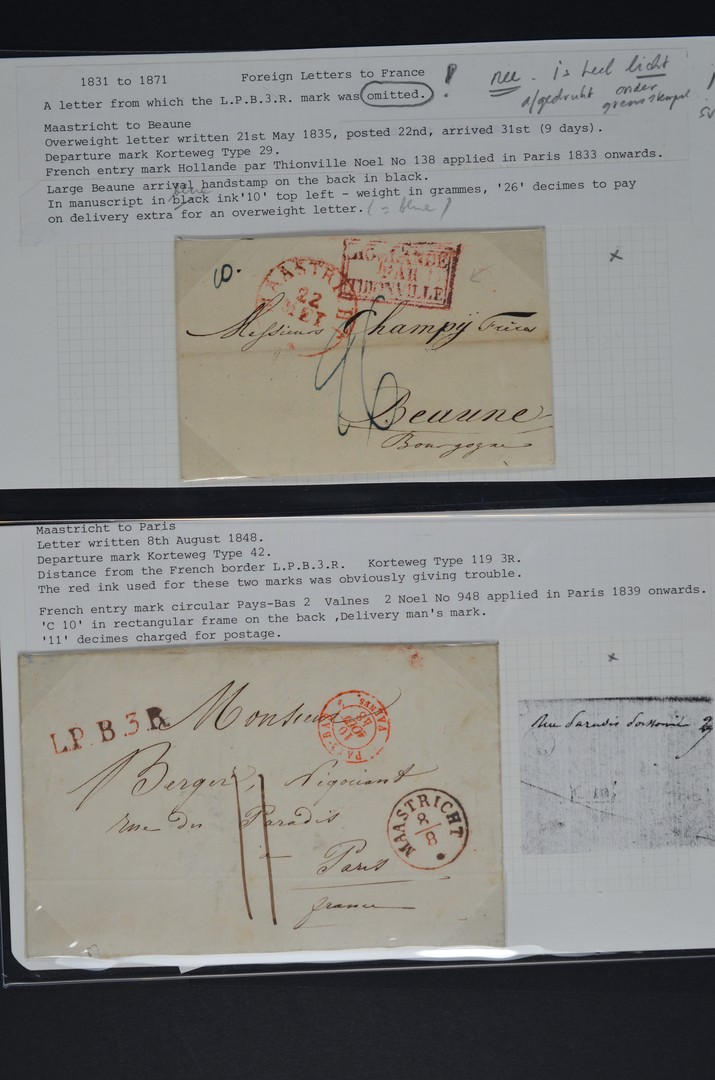 1831 to 1871 Foreign Letters to France
A letter from which the L.P.B.3.R. mark was omitted. !
nee. is heel licht
afgedrukt onder
grensstempel
Maastricht to Beaune
Overweight letter written 21st May 1835, posted 22nd, arrived 31st (9 days).
Departure mark Korteweg Type 29.
French entry mark Hollande par Thionville Noel No 138 applied in Paris 1833 onwards.
Large Beaune arrival handstamp on the back in black.
blue
In manuscript in black ink'10' top left - weight in grammes, '26' decimes to pay
on delivery extra for an overweight letter. (= blue)
x
HOLLANDE
PAR
THIONVILLE
MAASTRICHT
22
MEI
Messieurs Champy Frères
26
Beaune
Bourgogne
Maastricht to Paris
Letter written 8th August 1848.
Departure mark Korteweg Type 42.
Distance from the French border L.P.B.3.R. Korteweg Type 119 3R.
The red ink used for these two marks was obviously giving trouble.
French entry mark circular Pays-Bas 2 Valnes 2 Noel No 948 applied in Paris 1839 onwards.
'C 10' in rectangular frame on the back ,Delivery man's mark.
'11' decimes charged for postage.
x
L.P.B.3.R.
Monsieur
PAYS-BAS 2 VALNES 2
10
AOUT
48
Berger, Négociant
rue du Paradis
à
Paris
france
11
MAASTRICHT
8/8
Rue Paradis